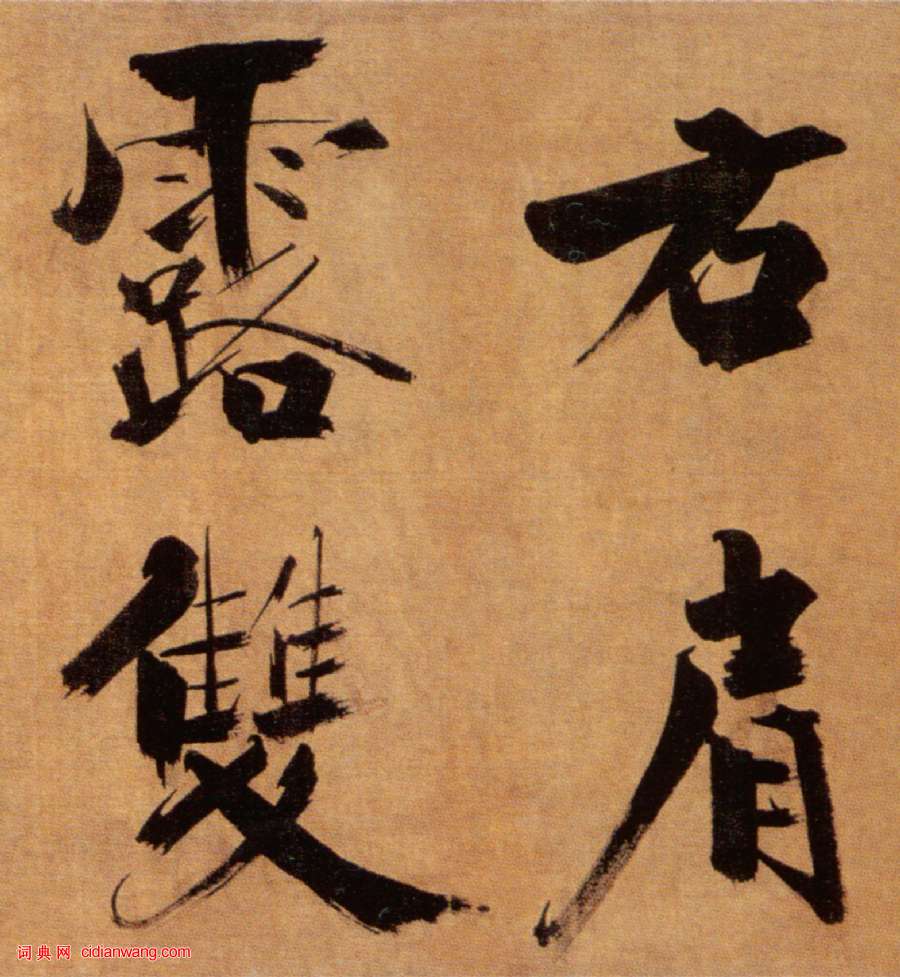 右肩
露雙
词典网 cidianwang.com